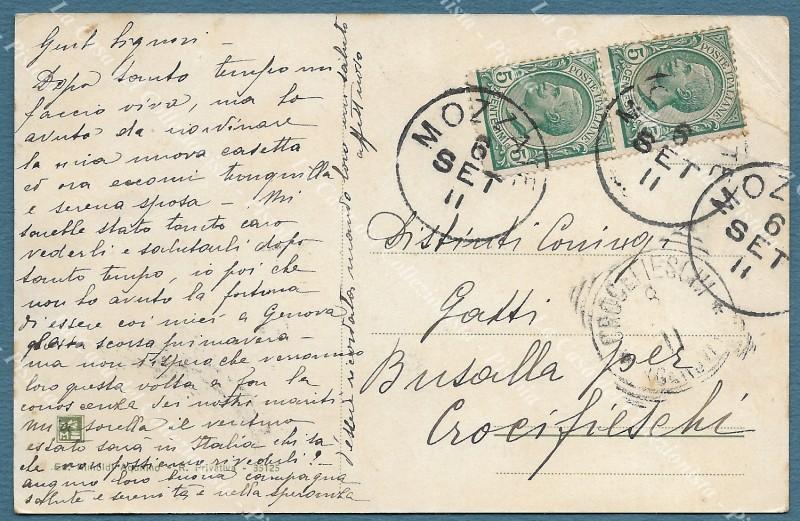 Gent Signori -
Dopo tanto tempo mi
faccio viva, ma ho
avuto da riordinare
la mia nuova casetta
ed ora eccomi tranquilla
e serena sposa - Mi
sarebbe stato tanto caro
vederli e salutarli dopo
tanto tempo, io poi che
non ho avuto la fortuna
di essere coi miei a Genova
questa scorsa primavera -
ma non dispera che verranno
loro questa volta a far la
conoscenza dei nostri mariti
Mia sorella il venturo
estate sarà in Italia chi sa
che non possiamo rivederli? -
auguro loro buona campagna
salute e serenità e nella speranza
d'essere ricordata mando loro un saluto
affettuoso
Distinti Coniugi
Gatti
Busalla per
Crocifieschi
5 POSTE ITALIANE 5
5 POSTE ITALIANE
MOZZA
6
SET
11
6
SET
11
MOZ
6
SET
11
CROCEFIESCHI
8
11
(GENOVA)
R. Privativa - 35125